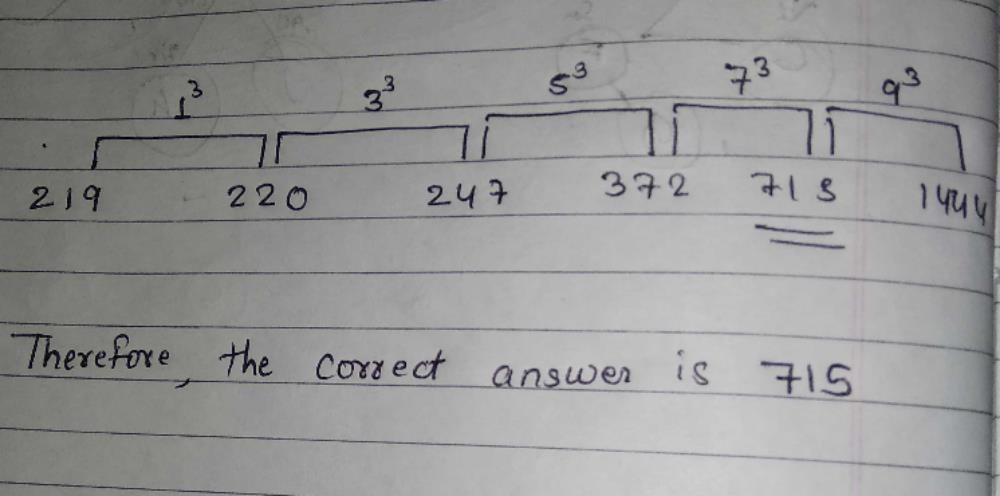 1³ 3³ 5³ 7³ 9³
219 220 247 372 715 1444
Therefore, the correct answer is 715